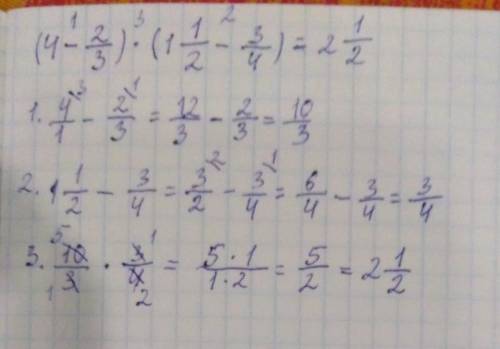 (4 -¹ 2/3) ·³ (1 1/2 -² 3/4) = 2 1/2
1. 4/1 ³ - 2/3 ¹ = 12/3 - 2/3 = 10/3
2. 1 1/2 - 3/4 = 3/2 ² - 3/4 ¹ = 6/4 - 3/4 = 3/4
3. ⁵10/3₁ · 3¹/4₂ = 5·1/1·2 = 5/2 = 2 1/2